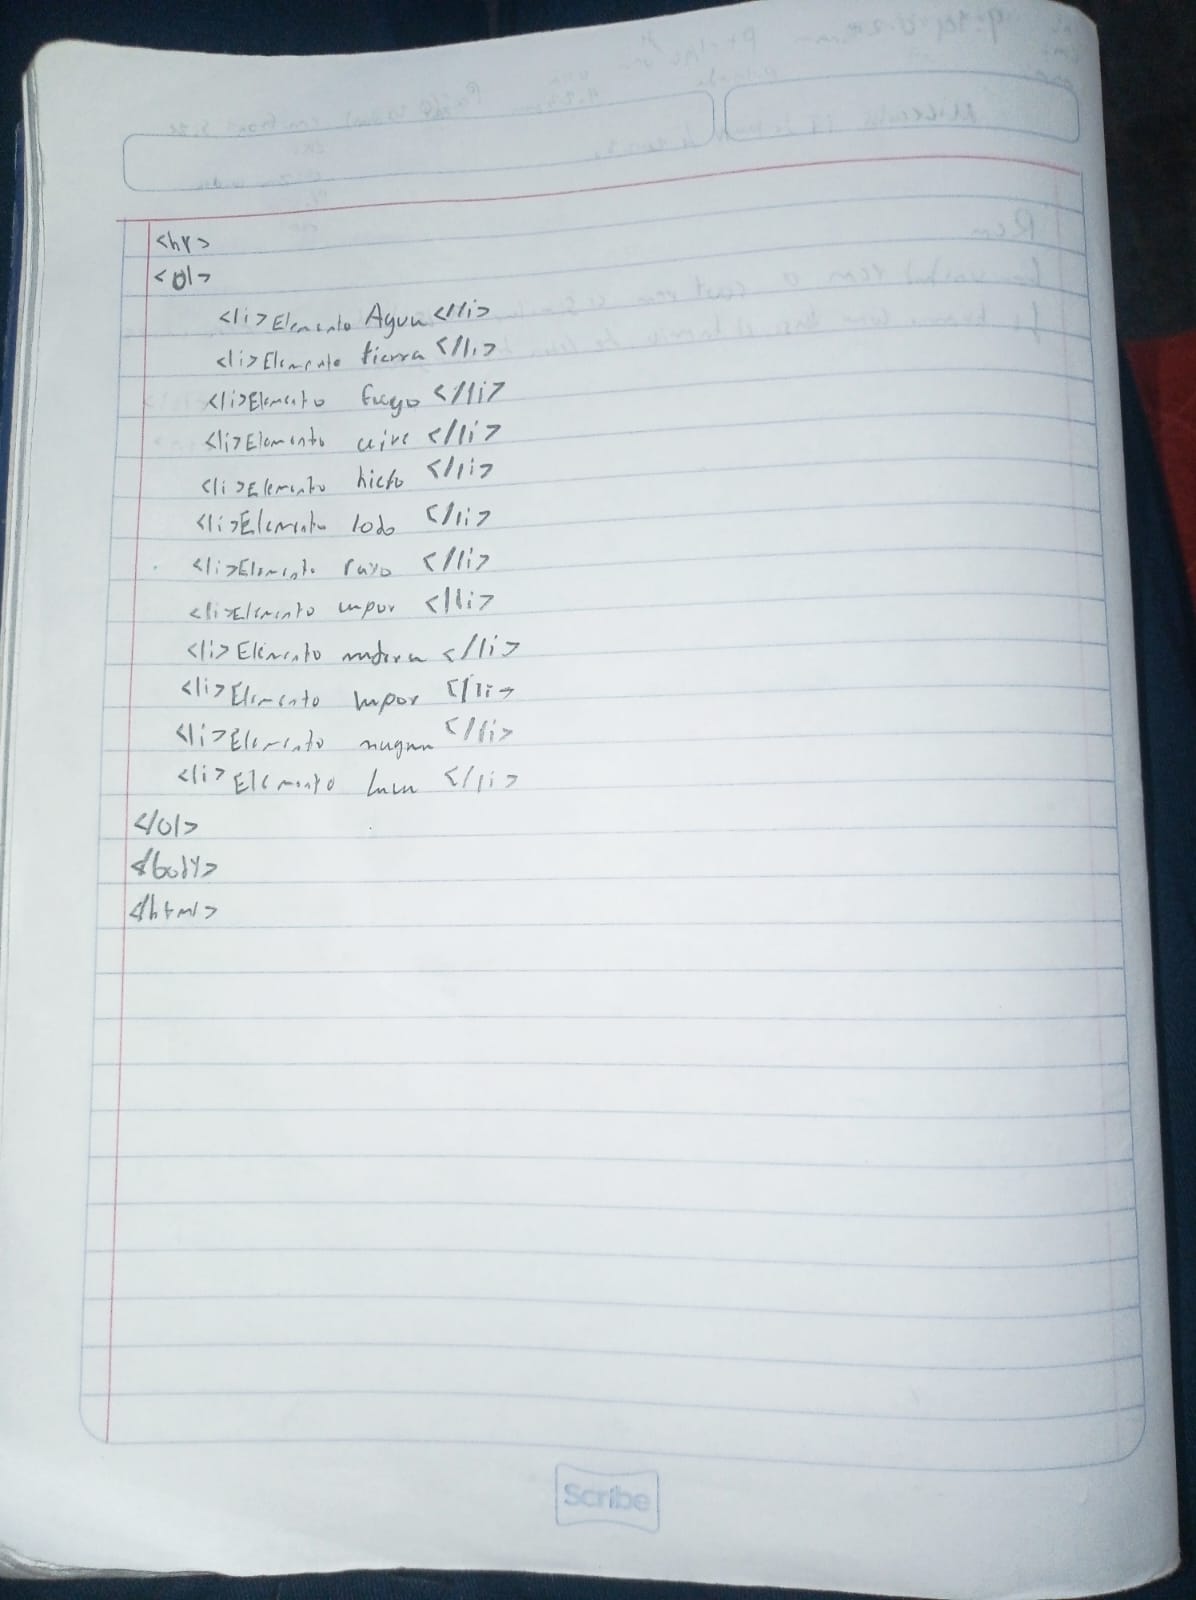 <hr>
<ol>
<li>Elemento Agua</li>
<li>Elemento tierra</li>
<li>Elemento fuego</li>
<li>Elemento aire</li>
<li>Elemento hielo</li>
<li>Elemento lodo</li>
<li>Elemento rayo</li>
<li>Elemento vapor</li>
<li>Elemento madera</li>
<li>Elemento vapor</li>
<li>Elemento magma</li>
<li>Elemento lava</li>
</ol>
</body>
</html>
Scribe